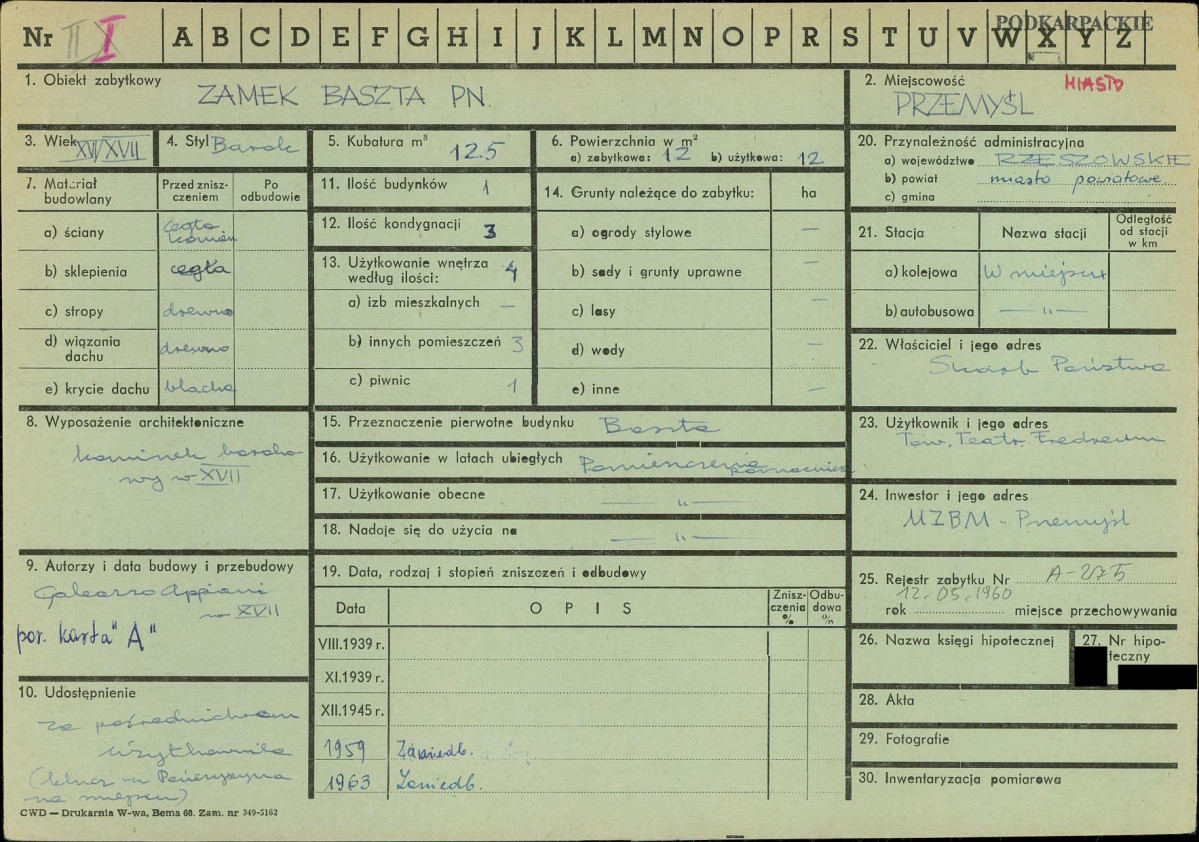 Nr II I A B C D E F G H I J K L M N O P R S T U V W X Y Z
PODKARPACKIE
1. Obiekt zabytkowy
ZAMEK BASZTA PN.
2. Miejscowość
MIASTO
PRZEMYŚL
3. Wiek XVI/XVII
4. Styl Barok
5. Kubatura m³
125
6. Powierzchnia w m²
a) zabytkowa: 12 b) użytkowa: 12
20. Przynależność administracyjna
a) województwo RZESZOWSKIE
b) powiat miasto powiatowe
c) gmina
7. Materiał budowlany
Przed zniszczeniem
Po odbudowie
a) ściany cegła kamień
b) sklepienia cegła
c) stropy drewno
d) wiązania dachu drewno
e) krycie dachu blacha
11. Ilość budynków 1
12. Ilość kondygnacji 3
13. Użytkowanie wnętrza według ilości: 4
a) izb mieszkalnych —
b) innych pomieszczeń 3
c) piwnic 1
14. Grunty należące do zabytku: ha
a) ogrody stylowe —
b) sady i grunty uprawne —
c) lasy —
d) wody —
e) inne —
21. Stacja Nazwa stacji Odległość od stacji w km
a) kolejowa W miejscu
b) autobusowa — " —
22. Właściciel i jego adres
Skarb Państwa
8. Wyposażenie architektoniczne
kominek baroko
wy w XVII
15. Przeznaczenie pierwotne budynku Baszta
16. Użytkowanie w latach ubiegłych Pomieszczenie pomocnicze
17. Użytkowanie obecne — " —
18. Nadaje się do użycia na — " —
23. Użytkownik i jego adres
Tow. Teatr. Fredreum
24. Inwestor i jego adres
MZBM - Przemyśl
9. Autorzy i data budowy i przebudowy
Galeazzo Appiani
w XVII
por. karta "A"
19. Data, rodzaj i stopień zniszczeń i odbudowy
Data OPIS Zniszczenia % Odbudowa %
VIII.1939 r.
XI.1939 r.
XII.1945 r.
1959 Zaniedb.
1963 Zaniedb.
25. Rejestr zabytku Nr A-275
12.05.1960
rok miejsce przechowywania
26. Nazwa księgi hipotecznej
27. Nr hipoteczny
28. Akta
29. Fotografie
30. Inwentaryzacja pomiarowa
10. Udostępnienie
za pośrednictwem
użytkownika
na miejscu)
CWD — Drukarnia W-wa, Bema 60. Zam. nr 349-5162